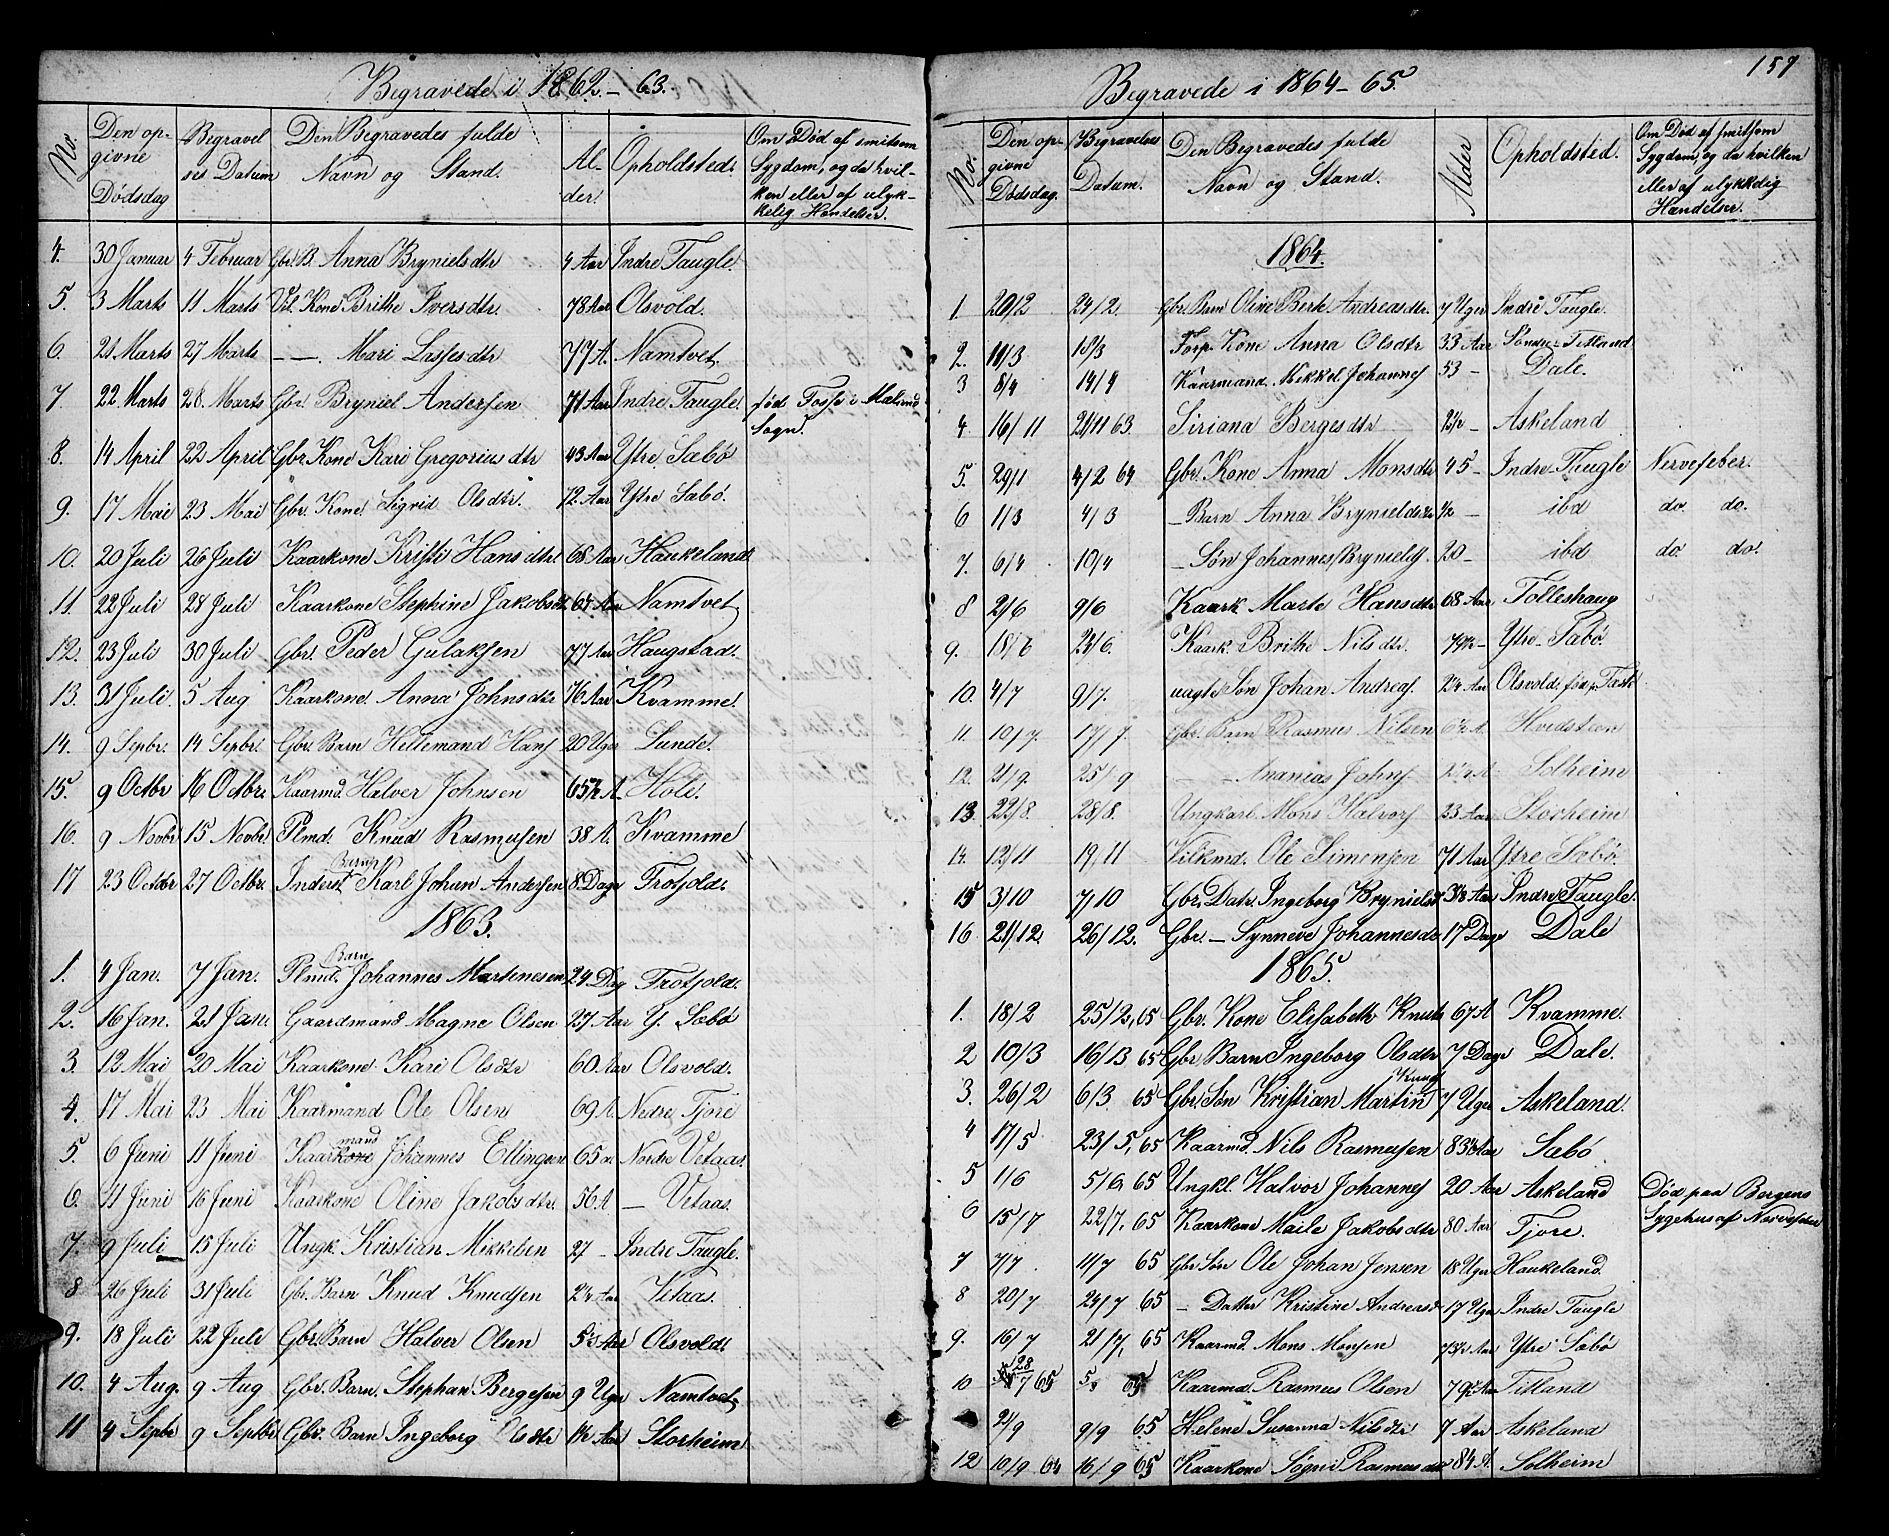 Begravede i 1862-63.
No. | Den opgivne Dødsdag | Begravelses Datum | Den Begravedes fulde Navn og Stand. | Alder. | Opholdsted. | Om Død af smitsom Sygdom, og da hvilken eller af ulykkelig Hændelse.
4. 30 Januar 4 Februar Gbr. B. Anna Brynielsdtr 4 Aar Indre Taugle.
5. 3 Marts 11 Marts Kone Brithe Iversdtr. 78 Aar Olsvold.
6. 21 Marts 27 Marts — Mari Lassesdtr 77 A. Namtvet
7 22 Marts 28 Marts Gbr. Bryniel Andersen 71 Aar Indre Taugle. fød Fosse i
Sogn.
8. 14 April 22 April Gbr. Kone Kari Gregoriusdtr 43 Aar Ytre Sæbø
9. 17 Mai 23 Mai Gbr. Kone Sigrid Olsdtr. 72 Aar Ytre Sæbø.
10. 20 Juli 26 Juli Kaarkone Kristi Hansdtr. 68 Aar Haukeland
11. 22 Juli 28 Juli Kaarkone Stephine Jakobsdtr Aar Namtvet
12. 23 Juli 30 Juli Gbr. Peder Gulaksen 77 Aar Haugstad.
13. 31 Juli. 5 Aug Kaarkone Anna Johnsdtr 76 Aar Kvamme.
14. 9 Sepbr. 14 Sepbr. Gbr. Barn Hellemand Hans 20 Uger Lunde.
15. 9 Octbr 16 Octbr. Kaarmd. Halver Johnsen 65½ A. Hole.
16. 9 Novbr 15 Novbr. Plmd. Knud Rasmusen 38 A. Kvamme
17 23 Octbr 27 Octbr. Inderst Barn Karl Johan Andersen 8 Dage Trotjold.
1863.
1. 4 Jan. 7 Jan. Plmd. Barn Johannes Martinesen 24 Dag Trotjold.
2. 16 Jan. 21 Jan. Gaardmand Magne Olsen 27 Aar Y. Sæbø
3. 12 Mai 20 Mai Kaarkone Kari Olsdtr 60 Aar Olsvold.
4. 17 Mai 23 Mai Kaarmand Ole Olsen 69 A. Nedre Tjore
5. 6 Juni 11 Juni Kaarkone mand Johannes Ellingsen 65 A Nordre Vetaas.
6. 11 Juni 16 Juni Kaarkone Oline Jakobsdtr. 56 A — Vetaas.
7. 9 Juli 15 Juli Ungk. Kristian Mikkelsen 27 — Indre Taugle.
8 26 Juli 31 Juli Gbr. Barn Knud Knudsen 2¼ Aar Vetaas.
9. 18 Juli 22 Juli Gbr. Barn Halver Olsen Aar Olsvold.
10. 4 Aug. 9 Aug Gbr. Barn. Stephan Bergesen 9 Uger Namtvet
11 4 Sepbr 9 Septbr. Gbr. Barn Ingeborg Olsdtr 1½ Aar Storheim
Begravede i 1864-65.
159
No. | Den opgivne Dødsdag. | Begravelses Datum. | Den Begravedes fulde Navn og Stand. | Alder | Opholdsted. | Om Død af smitsom Sygdom, og da hvilken eller af ulykkelig Hændelse.
1864.
1. 20/2 24/2. Gbr. Barn Oline Berte Andreasdtr. 7 Uger Indre Taugle.
2. 11/3 18/3 Forp. Kone Anna Olsdtr 33 Aar Søndre Titland
3 8/4 14/4 Kaarmand. Mikkel Johannes 53 — Dale.
4 16/11 21/11 63. Siriana Bergesdtr 2½ — Askeland
5. 29/1 4/2 64 Gbr. Kone Anna Monsdtr 45 — Indre Taugle Nervefeber.
6 1/3 4/3 — Barn Anna Brynieldsdtr ½ — ibd do. do.
7. 6/4 10/4 — Søn Johannes Bryniels. 20 — ibd do. do.
8 2/6 9/6 Kaark Marte Hansdtr 68 Aar Tolleshaug
9. 18/6 24/6. Kaark. Brithe Nilsdtr. 79½ — Ytre Sæbø.
10. 4/7 9/7. uægte Søn Johan Andreas. 2¼ Aar Olsvold. fød p.
11 10/7. 17/7. Gbr. Barn Rasmus Nilsen A. Hvidsteen
12. 21/9. 25/9 — Ananias Johns A. Solheim
13. 22/8. 28/8. Ungkarl Mons Halvors 23 Aar Storheim
14. 12/11 19/11 Vilkmd. Ole Simonsen 71 Aar Ytre Sæbø.
15 3/10 7/10 Gbr. Datr. Ingeborg Brynielsd 3½ Aar Indre Taugle.
16. 21/12. 26/12. Gbr. — Synneve Johannesdr 17 Dage Dale
1865.
1. 18/2 25/2, 65 Gbr. Kone Elisabeth Knuts 67 A Kvamme.
2 10/3 16/3 65 Gbr. Barn Ingeborg Olsdtr 7 Dage Dale.
3. 26/2 6/3 65 Gbr. Søn Kristian Martin Knuds 7 Uger Askeland.
4 17/5 23/5, 65 Kaarmd. Nils Rasmusen 83¼ Aar Sæbø
5 1/6 5/6, 65 Ungkl. Halvor Johannes 20 Aar Askeland Død paa Bergens Sygehus af Nervefeber
6 15/7 22/7, 65 Kaarkone Jakobsdtr 80 Aar Tjore.
7 7/7. 11/7 65 Gbr Søn Ole Johan Jensen 18 Uger Haukeland.
8 20/7 24/7 65 — Datter Kristine Andreasd 17 Uger Indre Taugle
9. 16/7 21/7, 65 Kaarmd. Mons Monsen 73½ Aar Ytre Sæbø
10 28/7 65 65 Kaarmd. Rasmus Olsen Aar Titland
21/9 9/9 65 Helene Susanna Nilsdtr 7 Aar Askeland
12 10/9 64 16/9 65 Kaarkone Søgni Rasmusdtr 84 A. Solheim